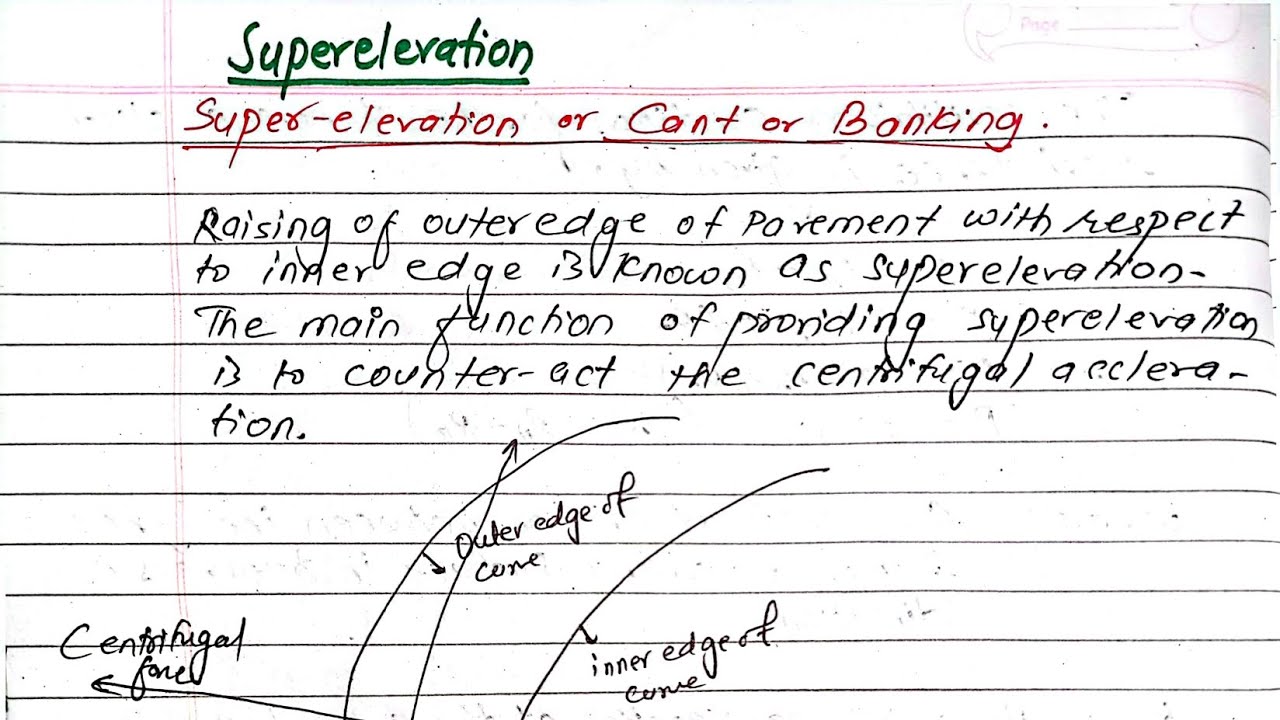 Page
Superelevation
Super-elevation or Cant or Banking.
Raising of outer edge of Pavement with respect
to inner edge is known as superelevation-
The main function of providing superelevation
is to counter-act the centrifugal acclera-
tion.
Outer edge of
curve
Centrifugal
force
inner edge of
curve